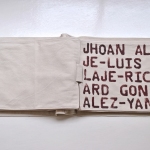 JHOAN AL
JE-LUIS
LAJE-RIC
ARD GON
ALEZ-YAN